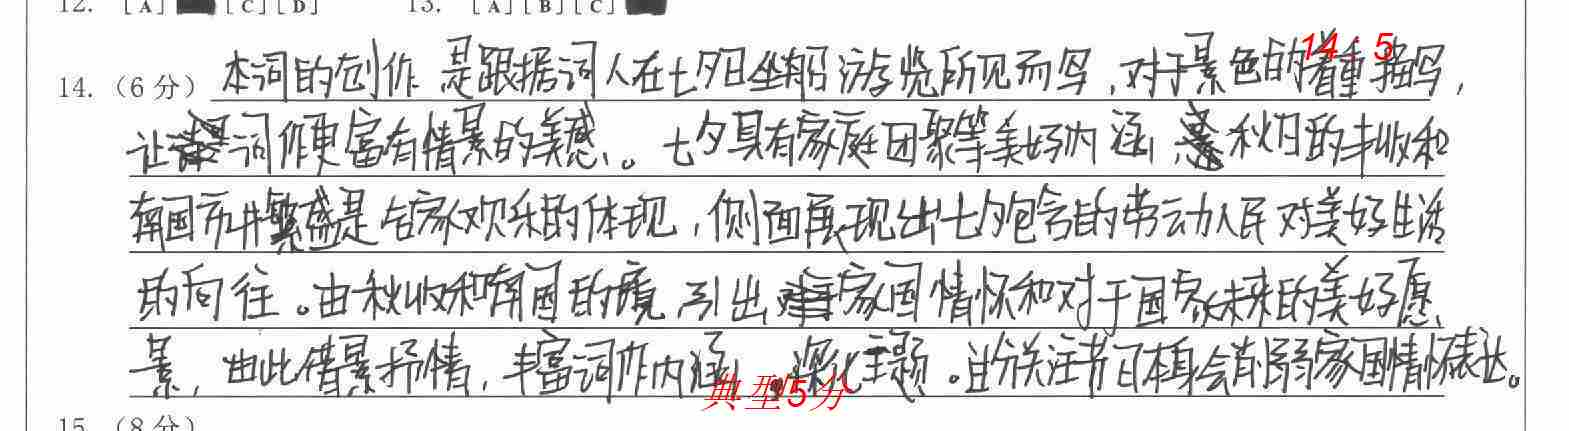 12. [A] [C] [D] 13. [A] [B] [C]
14:5
14.（6分）本词的创作是跟据词人在七夕日坐船游览所见而写，对于景色的着重描写，
让词作更富有情景的美感。七夕具有家庭团聚等美好内涵，秋日的丰收和
南国市井繁盛是合家欢乐的体现，侧面展现出七夕包含的劳动人民对美好生活
的向往。由秋收和南国的境引出家国情怀和对于国家未来的美好愿
景，由此借景抒情，丰富词作内涵，深化主题。过分关注节日本身会削弱家国情怀表达。
典型5分
15.（8分）